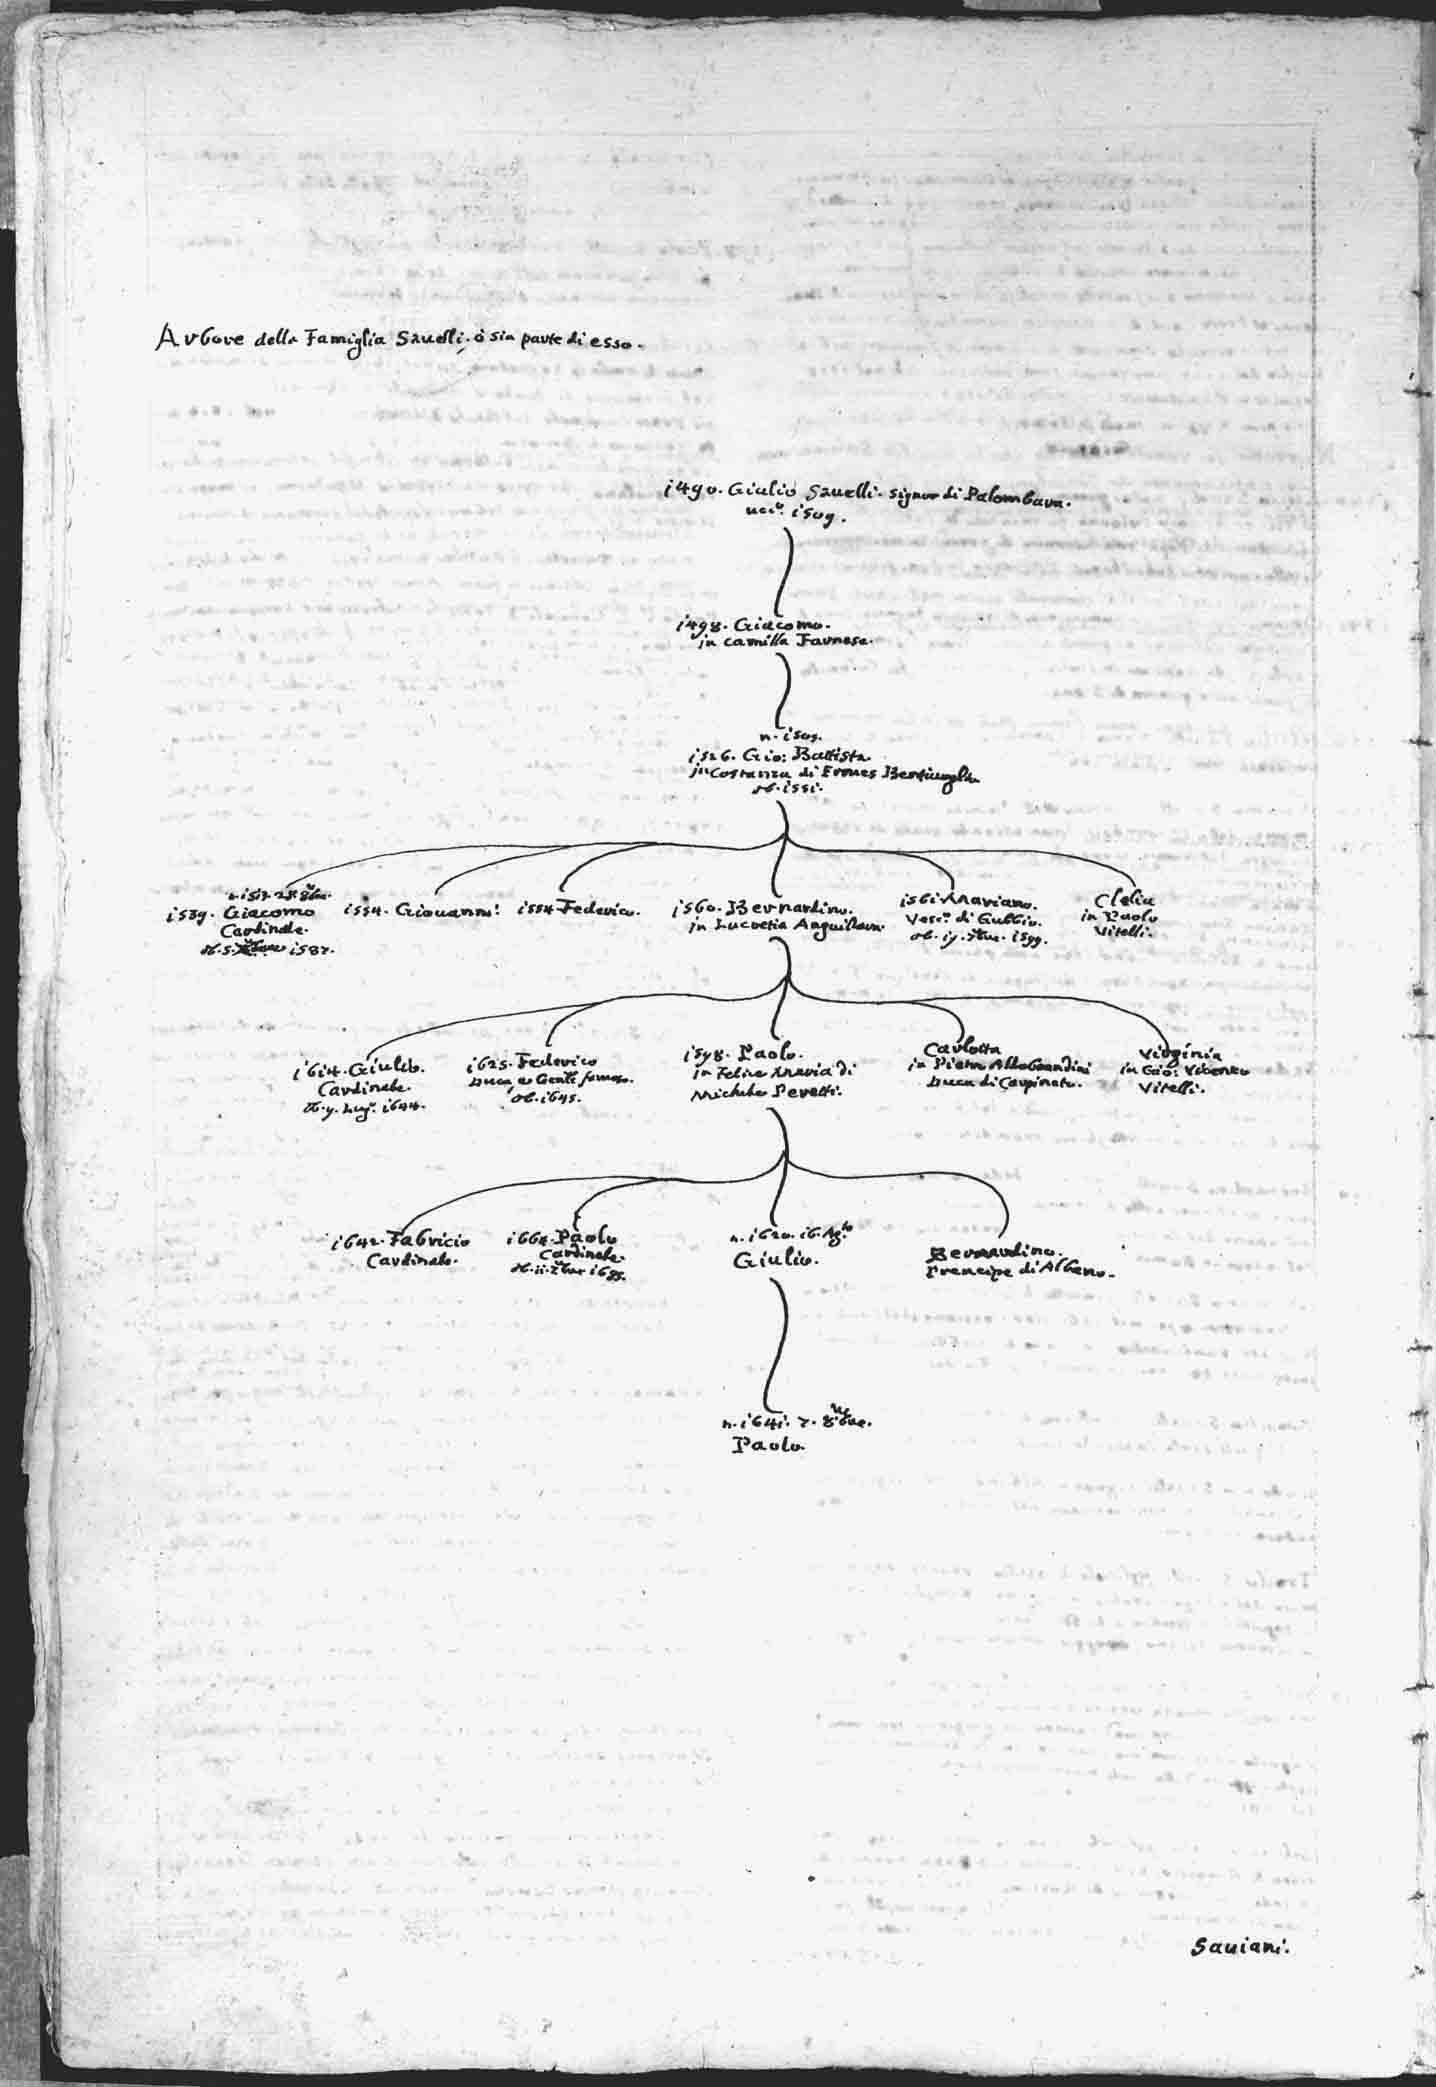 Arbore della Famiglia Sauelli. ò sia parte di esso.
i490. Giulio Sauelli. signor di Palombara.
i509.
i498. Giacomo.
in Camilla Farnese.
n. i505.
i526. Gio: Battista
in Costanza di Ermes Bentiuoglio
ob. i55i.
i539. Giacomo
Cardinale.
ob. 5. i587.
i554. Giouanni.
i554. Federico.
i560. Bernardino.
in Lucretia Anguillara.
i56i. Mariano.
Vesc.º di Gubbio.
ob. i599.
Clelia
in Paolo
Vitelli.
i6i4. Giulio.
Cardinale.
ob. 9. Lug.º i644.
i625. Federico
Duca famoso.
ob. i645.
i598. Paolo.
in Felice Maria di
Michele Peretti.
Carlotta
in Pietro Aldobrandini
Duca di Carpineto.
Virginia
in Gio: Vicenzo
Vitelli.
i642. Fabricio
Cardinale.
i664. Paolo
Cardinale.
ob. ii. i685.
n. i620. i6. Ag.to
Giulio.
Bernardino.
Prencipe di Albano.
n. i64i. 7. 8bre.
Paolo.
Sauiani.